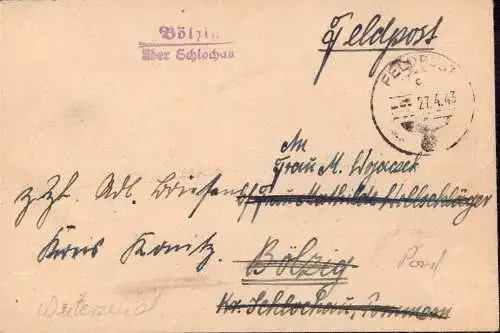 Bölzig
über Schlochau
Feldpost
FELDPOST
c
27.4.43
An
Frau M. Wojaczek
z. Zt. Adl. Briesen b/ Frau Mathilde Wollschläger
Kreis Konitz.
Bölzig
Kr. Schlochau, Pommern